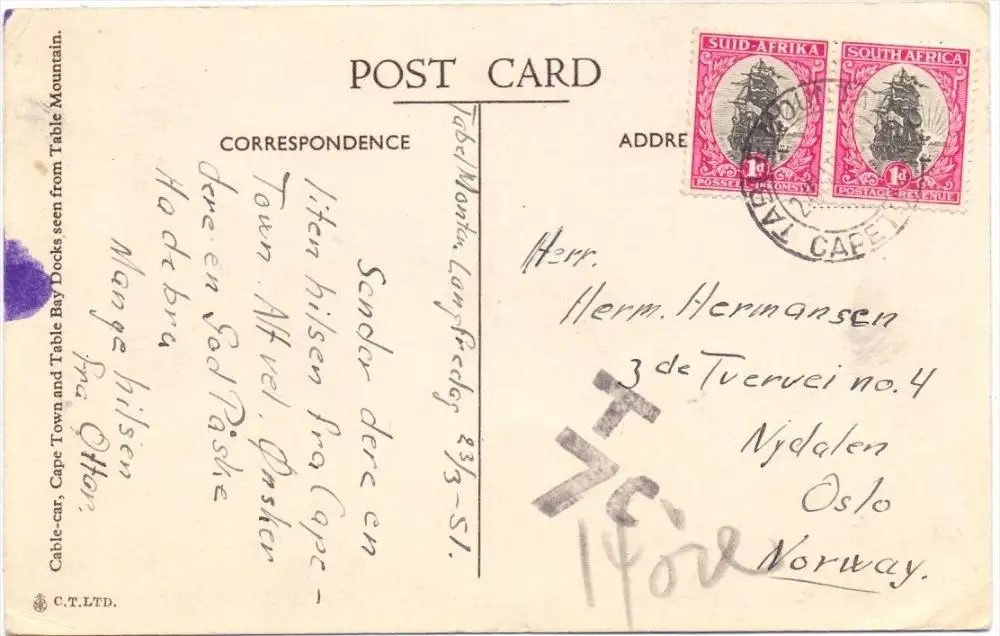 POST CARD
CORRESPONDENCE
ADDRE
SUID-AFRIKA
1d
SOUTH AFRICA
1d
POSTAGE-REVENUE
CAPE T
Tabel Montan Langfredag 23/3-51.
Sender dere en
liten hilsen fra Cape-
Town. Alt vel. Ønsker
dere en God Påske
Ha de bra
Mange hilsen
fra Ottar.
Herr.
Herm. Hermansen
3 de Tvervei no. 4
Nydalen
Oslo
Norway.
T
7c.
14 öre
Cable-car, Cape Town and Table Bay Docks seen from Table Mountain.
C.T.LTD.